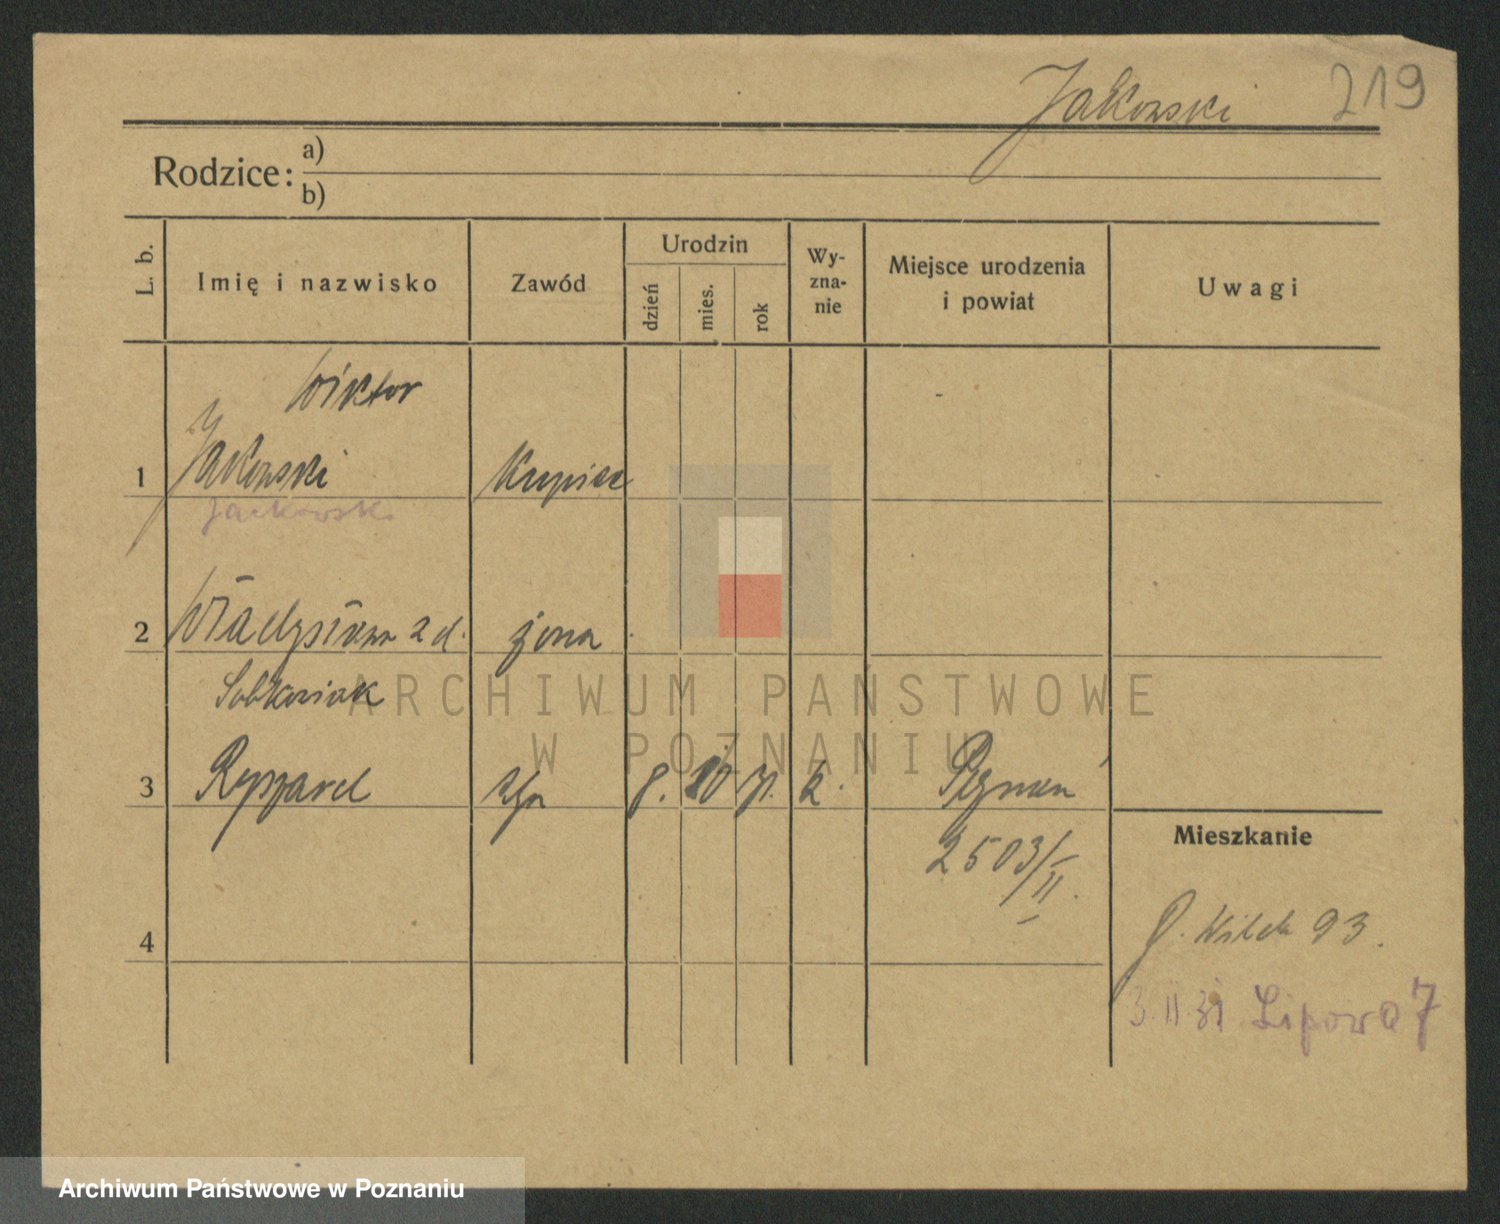 Jakowski 219
Rodzice: a)
b)
L. b.
Imię i nazwisko
Zawód
Urodzin
dzień
mies.
rok
Wy-
zna-
nie
Miejsce urodzenia
i powiat
Uwagi
Wiktor
1 Jakowski Kupiec
Jackowski
2 Władysława z d. żona
Sobkowiak
ARCHIWUM PAŃSTWOWE
W POZNANIU
3 Ryszard 8. 10 k.
Mieszkanie
2503/II.
4
G. Wilda 93.
3.11.31 Lipowa 7
Archiwum Państwowe w Poznaniu